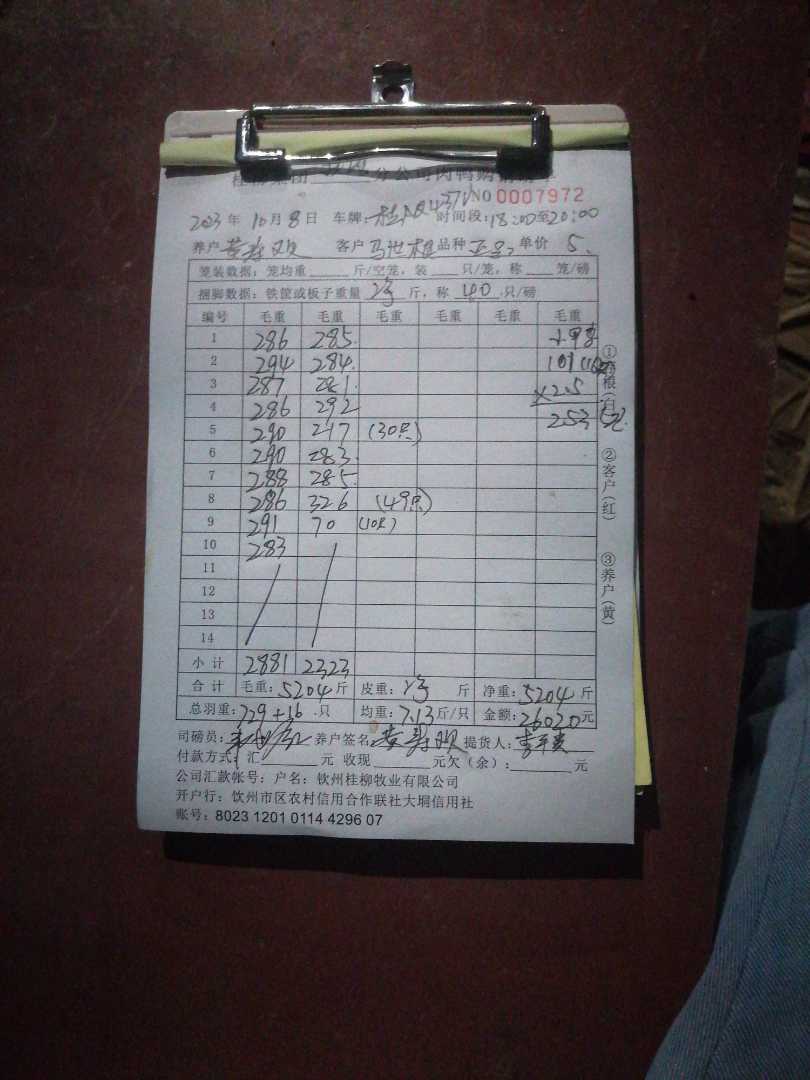 分公司肉鸭购销
NO 0007972
2023年10月8日 车牌: 时间段:18:00至20:00
养户 黄寿欢 客户 马世 品种 单价 5.
笼装数据:笼均重 斤/空笼,装 只/笼,称 笼/磅
捆脚数据:铁筐或板子重量 净 斤,称 40 只/磅
编号 毛重 毛重 毛重 毛重 毛重 毛重
1 286 285 净
2 294 284 101
3 287 281 ×2.5
4 286 292 253元
5 290 247 (30只)
6 290 283
7 288 285
8 286 326 (49只)
9 291 70 (10只)
10 283
11
12
13
14
小计 2881 2323
合计 毛重:5204斤 皮重:净 斤 净重:5204斤
总羽重:729+16 只 均重:7.13斤/只 金额:26020元
司磅员: 养户签名 黄寿欢 提货人:
付款方式:汇 元 收现 元欠(余): 元
公司汇款帐号:户名:钦州桂柳牧业有限公司
开户行:钦州市区农村信用合作联社大垌信用社
账号:8023 1201 0114 4296 07
①存根(白) ②客户(红) ③养户(黄)